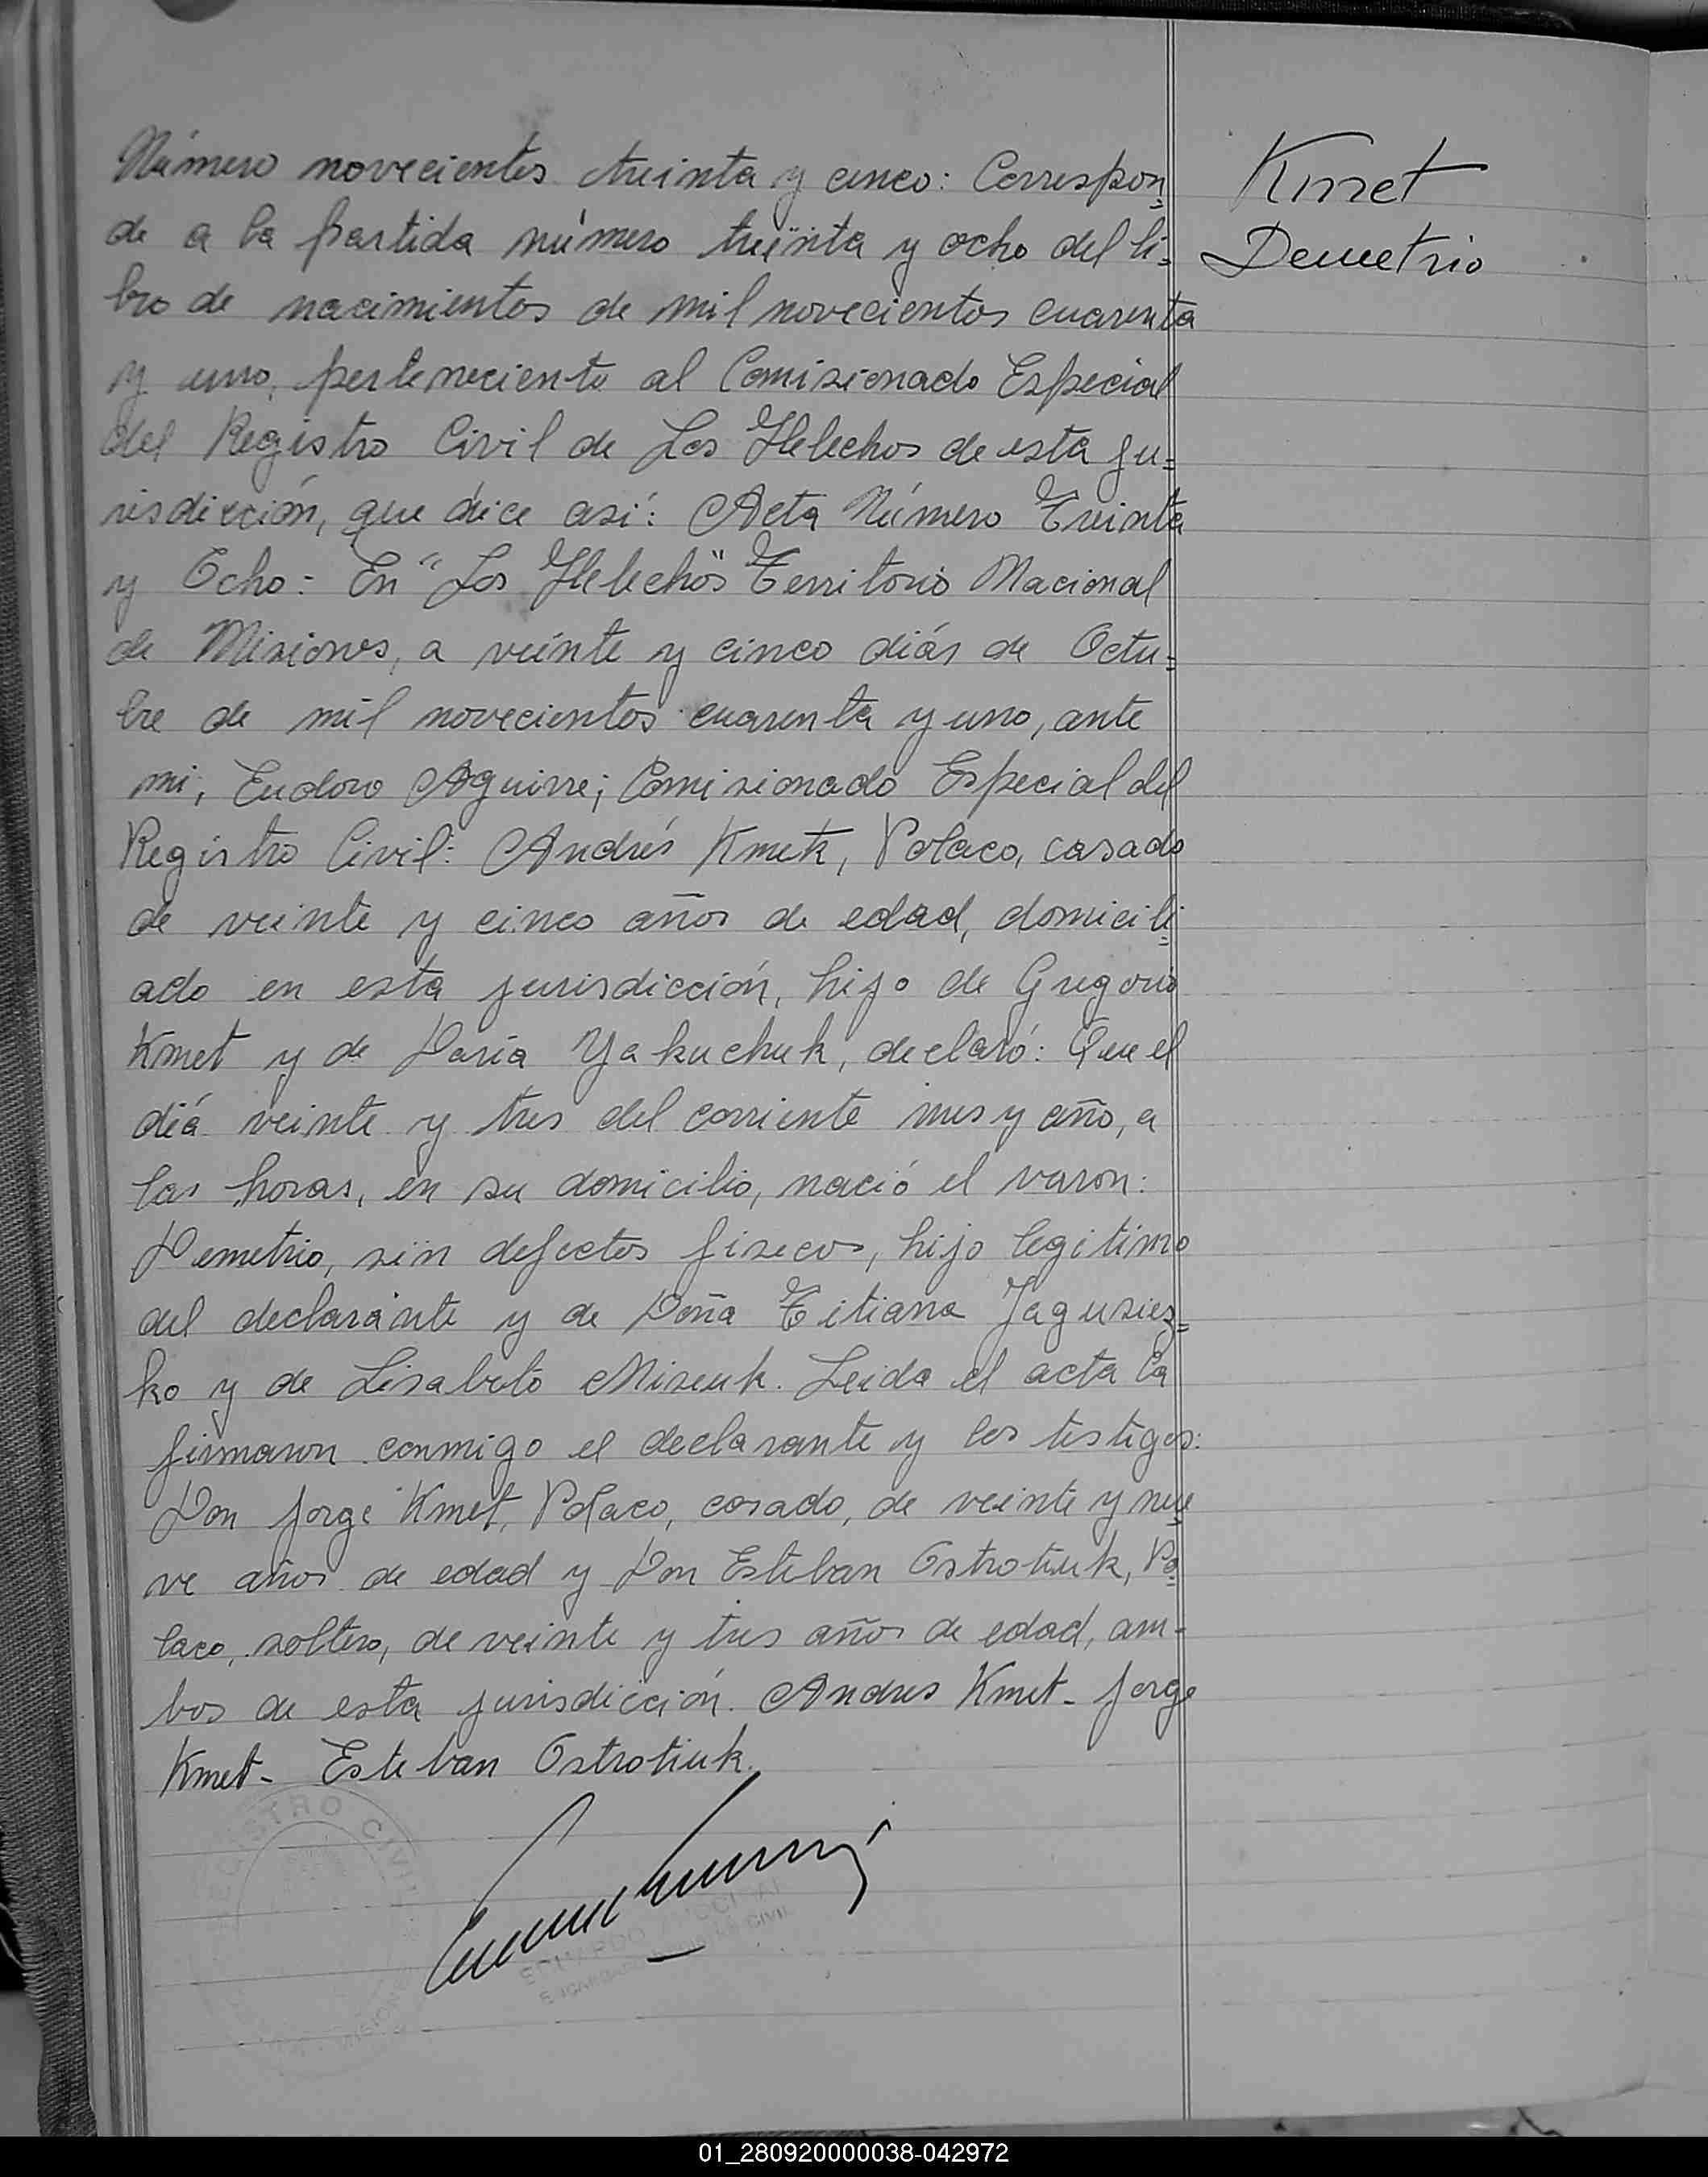 Número novecientos treinta y cinco: Correspon=
de a la partida número treinta y ocho del li=
bro de nacimientos de mil novecientos cuarenta
y uno, perteneciente al Comisionado Especial
del Registro Civil de Los Helechos de esta ju=
risdicción, que dice así: Acta Número Treinta
y Ocho: En "Los Helechos" Territorio Nacional
de Misiones, a veinte y cinco días de Octu=
bre de mil novecientos cuarenta y uno, ante
mi, Eudoro Aguirre; Comisionado Especial del
Registro Civil: Andrés Kmet, Polaco, casado
de veinte y cinco años de edad, domicili=
ado en esta jurisdicción, hijo de Gregorio
Kmet y de Daria Yakuchuk, declaró: Que el
día veinte y tres del corriente mes y año, a
las horas, en su domicilio, nació el varon:
Demetrio, sin defectos fisecos, hijo legitimo
del declarante y de Doña Titiana Jagusiez=
ko y de Lisabeto Miseuk. Leida el acta la
firmaron conmigo el declarante y los testigos:
Don Jorge Kmet, Polaco, casado, de veinte y nue=
ve años de edad y Don Esteban Ostrotiuk, Po=
laco, soltero, de veinte y tres años de edad, am-
bos de esta jurisdicción. Andres Kmet- Jorge
Kmet- Esteban Ostrotiuk.
Kmet
Demetrio
REGISTRO CIVIL
MISIONES
CIVIL
01_280920000038-042972